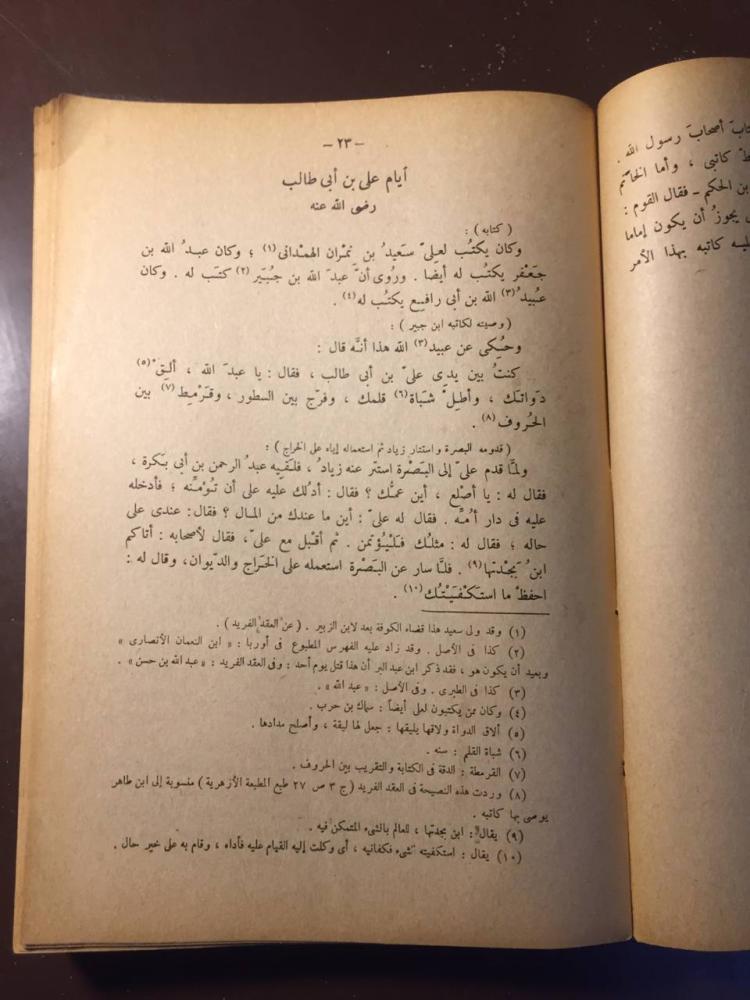 — ٢٣ —
أيام على بن أبى طالب
رضى الله عنه
( كتابه ) :
وكان يكتُب لعلىّ سَعيدُ بن نمْران الهمْدانى (١) ؛ وكان عبدُ الله بن
جَعْفر يكتُب له أيضا . ورُوى أنَّ عبدَ الله بن جُبَير (٢) كتَب له . وكان
عُبيدُ (٣) الله بن أبى رافع يكتُب له (٤) .
( وصيته لكاتبه ابن جبير ) :
وحُكِى عن عبيد (٣) الله هذا أنَّه قال :
كنتُ بين يدى علىّ بن أبى طالب ، فقال : يا عبدَ الله ، ألِقْ (٥)
دَواتك ، وأطِلْ شَباة (٦) قلمك ، وفرّج بين السطور ، وقَرْمِط (٧) بين
الحُروف (٨) .
( قدومه البصرة واستتار زياد ثم استعماله إياه على الخراج ) :
ولمَّا قدم علىّ إلى البَصْرة استتر عنه زيادُ ، فلقيه عبدُ الرحمن بن أبى بَكرة ،
فقال له : يا أصْلع ، أين عمُّك ؟ فقال : أدُلك عليه على أن تُؤمِّنه ؛ فأدخله
عليه فى دار أمِّه . فقال له علىّ : أين ما عندك من المال ؟ فقال : عندى على
حاله ؛ فقال له : مثلُك فَلْيُؤتمن . ثم أقْبل مع علىّ ، فقال لأصحابه : أتاكم
ابنُ بَجْدتها (٩) . فلمَّا سار عن البَصْرة استعمله على الخَراج والدّيوان ، وقال له :
احفظْ ما استَكْفَيْتُك (١٠) .
(١) وقد ولى سعيد هذا قضاء الكوفة بعد لابن الزبير . ( عن العقد الفريد ) .
(٢) كذا فى الأصل . وقد زاد عليه الفهرس المطبوع فى أوربا : « ابن النعمان الأنصارى »
وبعيد أن يكون هو ، فقد ذكر ابن عبد البر أن هذا قتل يوم أحد : وفى العقد الفريد : « عبد الله بن حسن » .
(٣) كذا فى الطبرى . وفى الأصل : « عبد الله » .
(٤) وكان ممن يكتبون لعلى أيضاً : سماك بن حرب .
(٥) ألاق الدواة ولاقها يليقها : جعل لها ليقة ، وأصلح مدادها .
(٦) شباة القلم : سنه .
(٧) القرمطة : الدقة فى الكتابة والتقريب بين الحروف .
(٨) وردت هذه النصيحة فى العقد الفريد ( ج ٣ ص ٢٧ طبع المطبعة الأزهرية ) منسوبة إلى ابن طاهر
يوصى بها كاتبه .
(٩) يقال : ابن بجدتها ، للعالم بالشىء المتمكن فيه .
(١٠) يقال : استكفيته الشىء فكفانيه ، أى وكلت إليه القيام عليه فأداه ، وقام به على خير حال .
أصحابَ رسول الله .
كاتبى ، وأما الخاتم
بن الحكم – فقال القوم :
يجوزُ أن يكون إماما
كاتبه بهذا الأمر